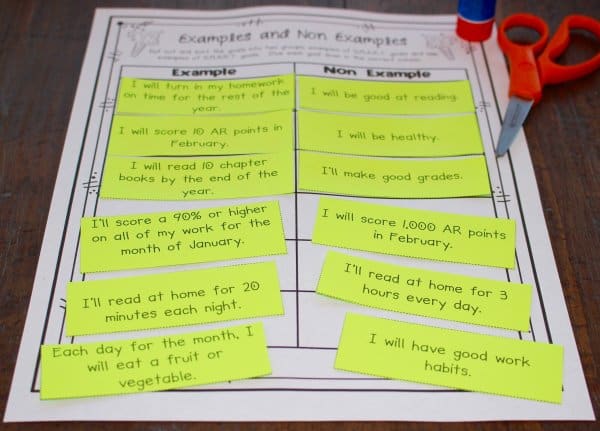 Examples and Non Examples
Cut and sort the goals into two groups: examples of S.M.A.R.T. goals and non
examples of S.M.A.R.T. goals. Glue each goal down in the correct column.
Example
Non Example
I will turn in my homework
on time for the rest of the
year.
I will be good at reading.
I will score 10 AR points in
February.
I will be healthy.
I will read 10 chapter
books by the end of the
year.
I'll make good grades.
I'll score a 90% or higher
on all of my work for the
month of January.
I will score 1,000 AR points
in February.
I'll read at home for 20
minutes each night.
I'll read at home for 3
hours every day.
Each day for the month, I
will eat a fruit or
vegetable.
I will have good work
habits.